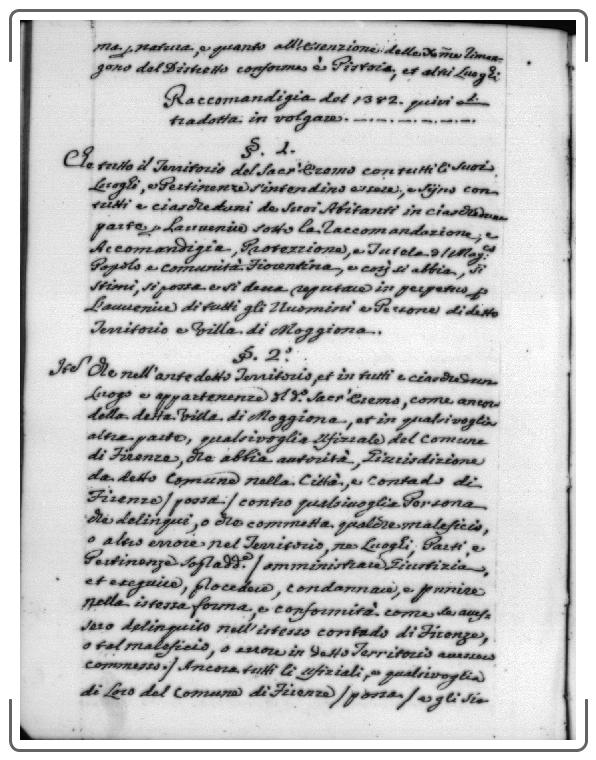 ma, natura, e quanto all'Esenzione delle Xme. riman-
gono del Distretto conforme è Pistoia, et altri Luoghi
Raccomandigia del 1382. quivi
tradotta in volgare.
§. 1.
Che tutto il Territorio del Sacr'Eremo con tutti li Suoi
Luoghi, e Pertinenze s'intendino essere, e sijno con
tutti e ciascheduni de Suoi Abitanti in ciascheduna
parte p. L'avvenire sotto la Raccomandazione, e
Accomandigia, Protezzione, e Tutela d'l Mag:co
Popolo e comunità Fiorentina, e così si abbia, si
stimi, si possa e si deva reputare in perpetuo p
L'avvenire di tutti gli Uuomini e Persone di detto
Territorio e Villa di Moggiona.
§. 2.o
Ite Che nell'antedetto Territorio, et in tutti e ciaschedun
Luogo e appartenenze d'l d.o Sacr'Eremo, come ancor
della detta Villa di Moggiona, et in qualsivoglia
altra parte, qualsivoglia Ufiziale del Comune
di Firenze, che abbia autorità, Giurisdizione
da detto Comune nella Città, e Contado di
Firenze / possa / contro qualsivoglia Persona
che delinqui, o che commetta qualche maleficio,
o altro errore nel Territorio, ne Luoghi, Parti e
Pertinenze Sopradd.e / amministrare Giustizia,
et eseguire, procedere, condannare, e punire
nella istessa forma, e conformità come se aves-
sero delinquito nell'istesso contado di Firenze,
o tal maleficio, o errore in detto Territorio avessero
commesso. / Ancora tutti li Ufiziali, e qualsivoglia
di Loro del Comune di Firenze / possa / e gli sia